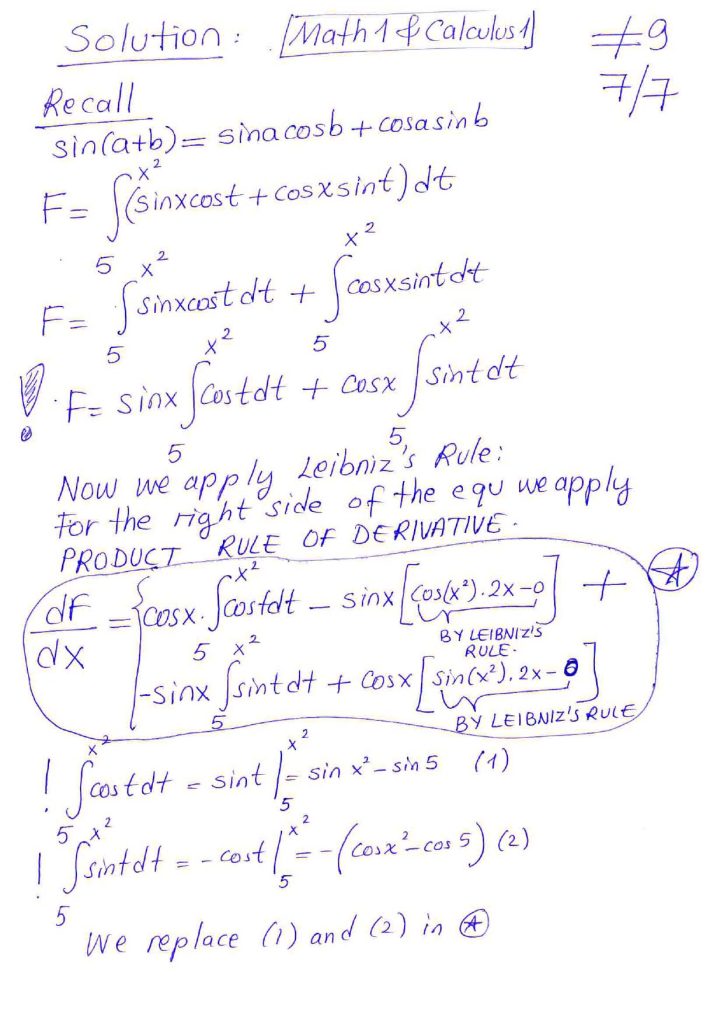 Solution: [Math 1 & Calculus 1] #9
7/7
Recall
sin(a+b) = sina cosb + cosa sinb
F = ∫₅^{x²} (sinx cost + cosx sint) dt
F = ∫₅^{x²} sinx cost dt + ∫₅^{x²} cosx sint dt
! F = sinx ∫₅^{x²} cost dt + cosx ∫₅^{x²} sint dt
Now we apply Leibniz's Rule:
For the right side of the equ we apply
PRODUCT RULE OF DERIVATIVE.
dF/dx = { cosx · ∫₅^{x²} cost dt - sinx [cos(x²) · 2x - 0] + ☆
BY LEIBNIZ'S
RULE.
-sinx ∫₅^{x²} sint dt + cosx [sin(x²) · 2x - 0]
BY LEIBNIZ'S RULE
! ∫₅^{x²} cost dt = sint |₅^{x²} = sin x² - sin 5 (1)
! ∫₅^{x²} sint dt = - cost |₅^{x²} = - (cosx² - cos 5) (2)
We replace (1) and (2) in ☆